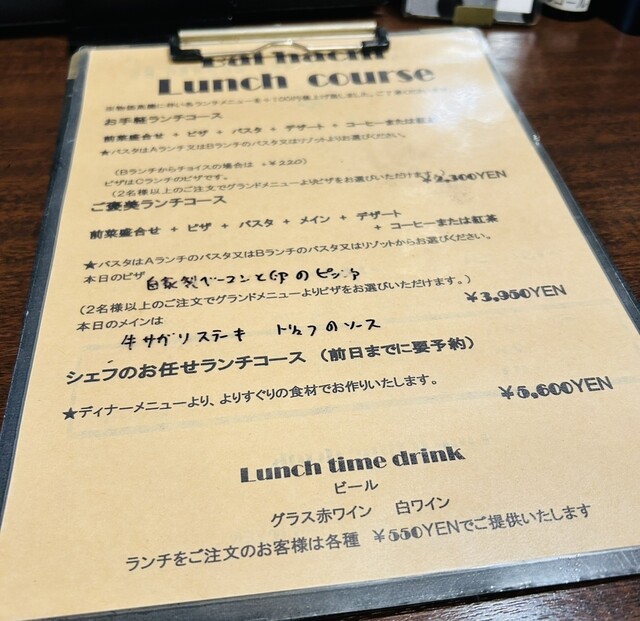 Bal hachi
Lunch course
※物価高騰に伴い各ランチメニューを＋100円値上げ致しました。ご了承ください。
お手軽ランチコース
前菜盛合せ ＋ ピザ ＋ パスタ ＋ デザート ＋ コーヒーまたは紅茶
★パスタはAランチ又はBランチのパスタ又はリゾットよりお選びください。
（Bランチからチョイスの場合は ＋¥220）
ピザはCランチのピザです。
（2名様以上のご注文でグランドメニューよりピザをお選びいただけます。）
¥2,300YEN
ご褒美ランチコース
前菜盛合せ ＋ ピザ ＋ パスタ ＋ メイン ＋ デザート
＋ コーヒーまたは紅茶
★パスタはAランチのパスタ又はBランチのパスタ又はリゾットからお選びください。
本日のピザ 自家製ベーコンと卵のピッツァ
（2名様以上のご注文でグランドメニューよりピザをお選びいただけます。）
¥3,950YEN
本日のメインは
牛サガリステーキ トリュフのソース
シェフのお任せランチコース （前日までに要予約）
★ディナーメニューより、よりすぐりの食材でお作りいたします。
¥5,600YEN
Lunch time drink
ビール
グラス赤ワイン 白ワイン
ランチをご注文のお客様は各種 ¥550YENでご提供いたします